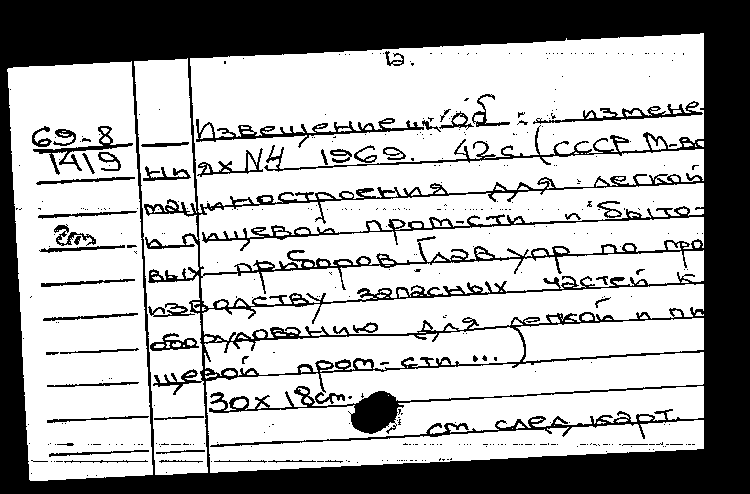 12.
69-8
1419
Извещение... об измене-
ниях NН 1969. 42 с. (СССР М-во
машиностроения для легкой
и пищевой пром-сти и быто-
вых приборов. Глав упр по про
изводству запасных частей к
оборудованию для легкой и пи
щевой пром-сти...)
30х18 ст.
ст. след. карт.